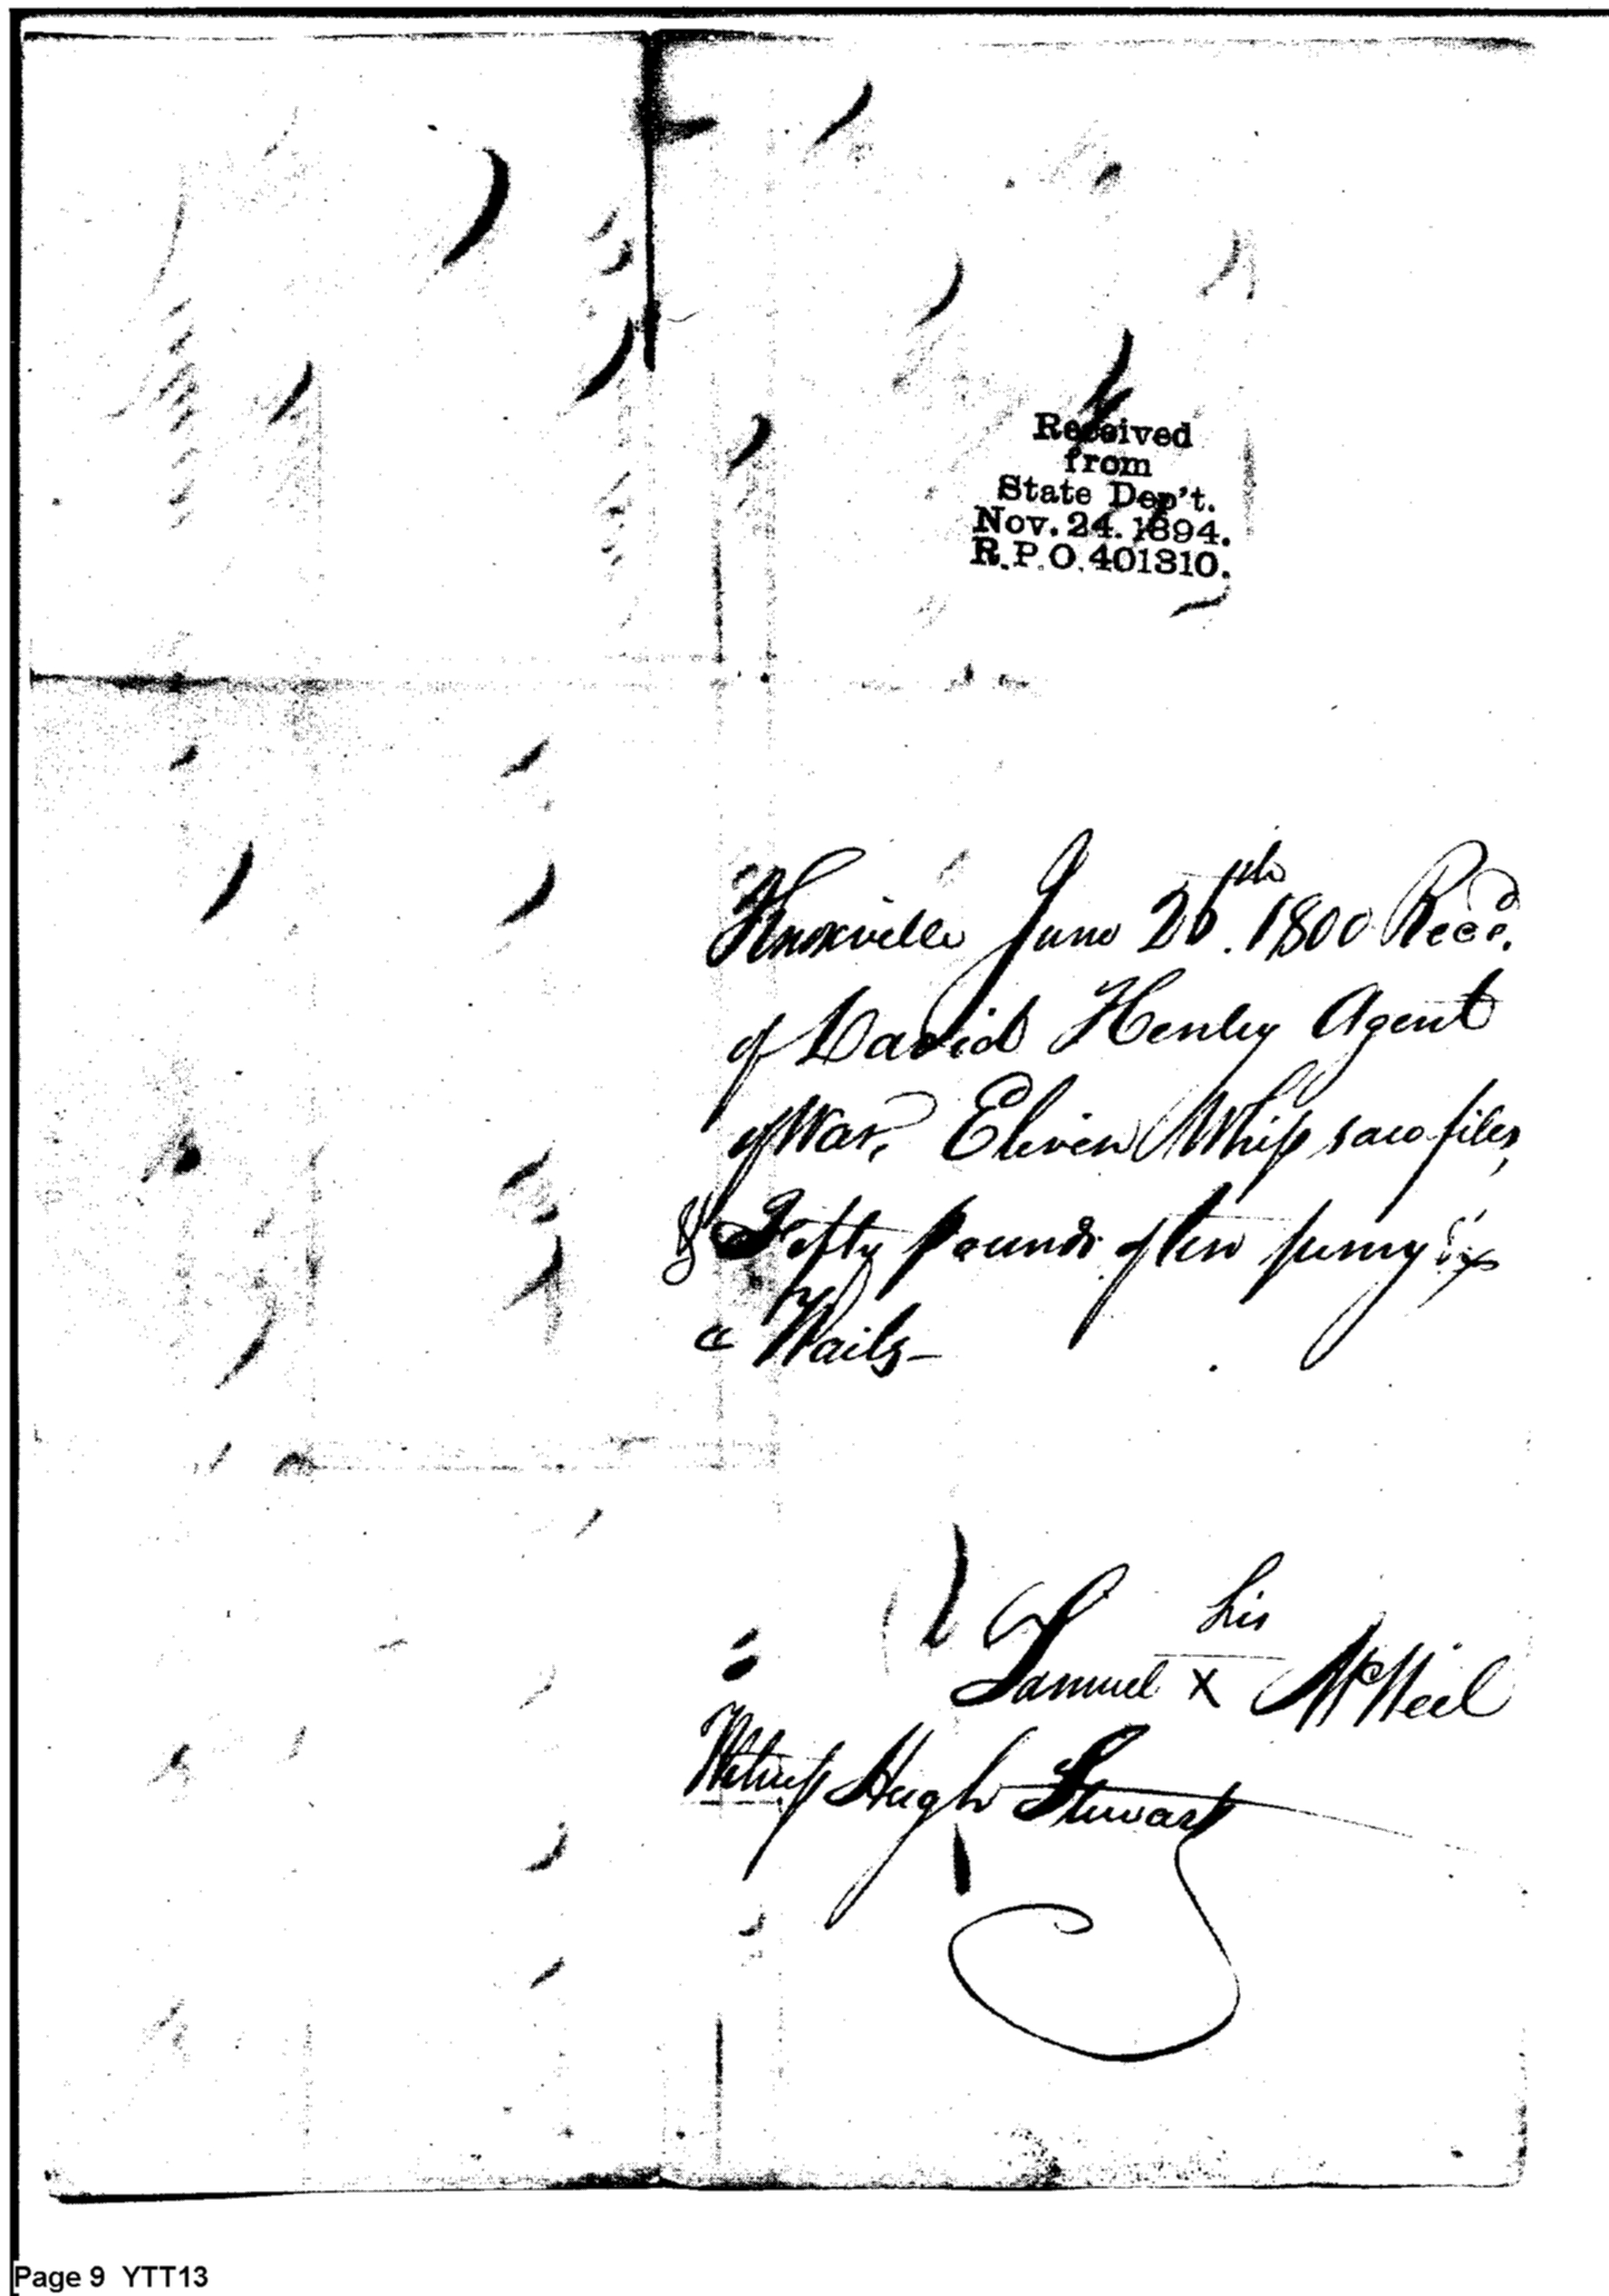 Received
from
State Dep't.
Nov. 24. 1894.
R.P.O. 401310.
Knoxville June 26th. 1800 Recd.
of David Henley Agent
of War, Eleven Whip saw files,
& Fifty pounds of ten penny
Nails—
his
Samuel X McNeil
Witness Hugh Stewart
Page 9 YTT13